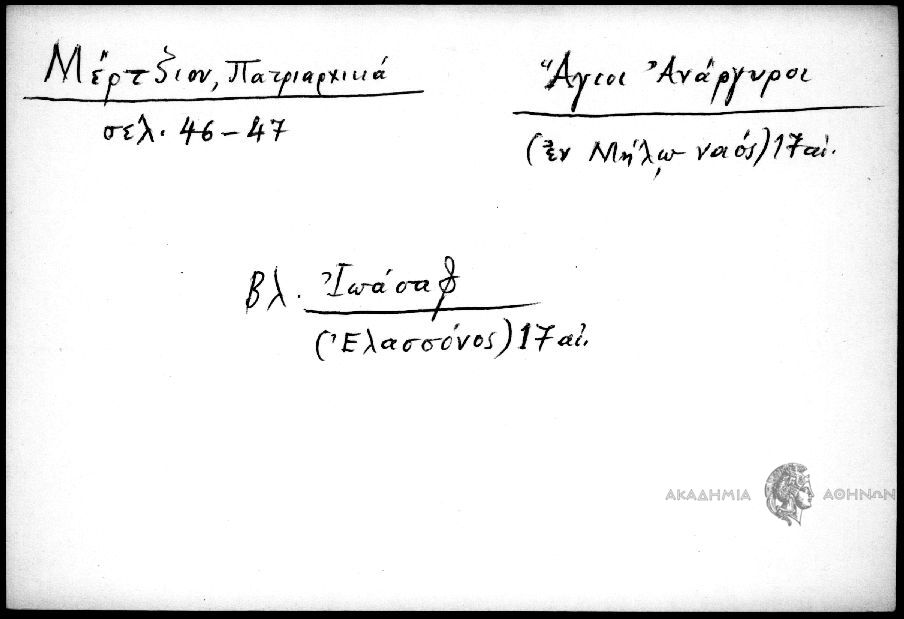 Μέρτζιου, Πατριαρχικά
σελ. 46-47
Ἅγιοι Ἀνάργυροι
(ἐν Μήλῳ ναός) 17 αἰ.
Βλ. Ἰωάσαφ
(Ἐλασσόνος) 17 αἰ.
ΑΚΑΔΗΜΙΑ ΑΘΗΝΩΝ